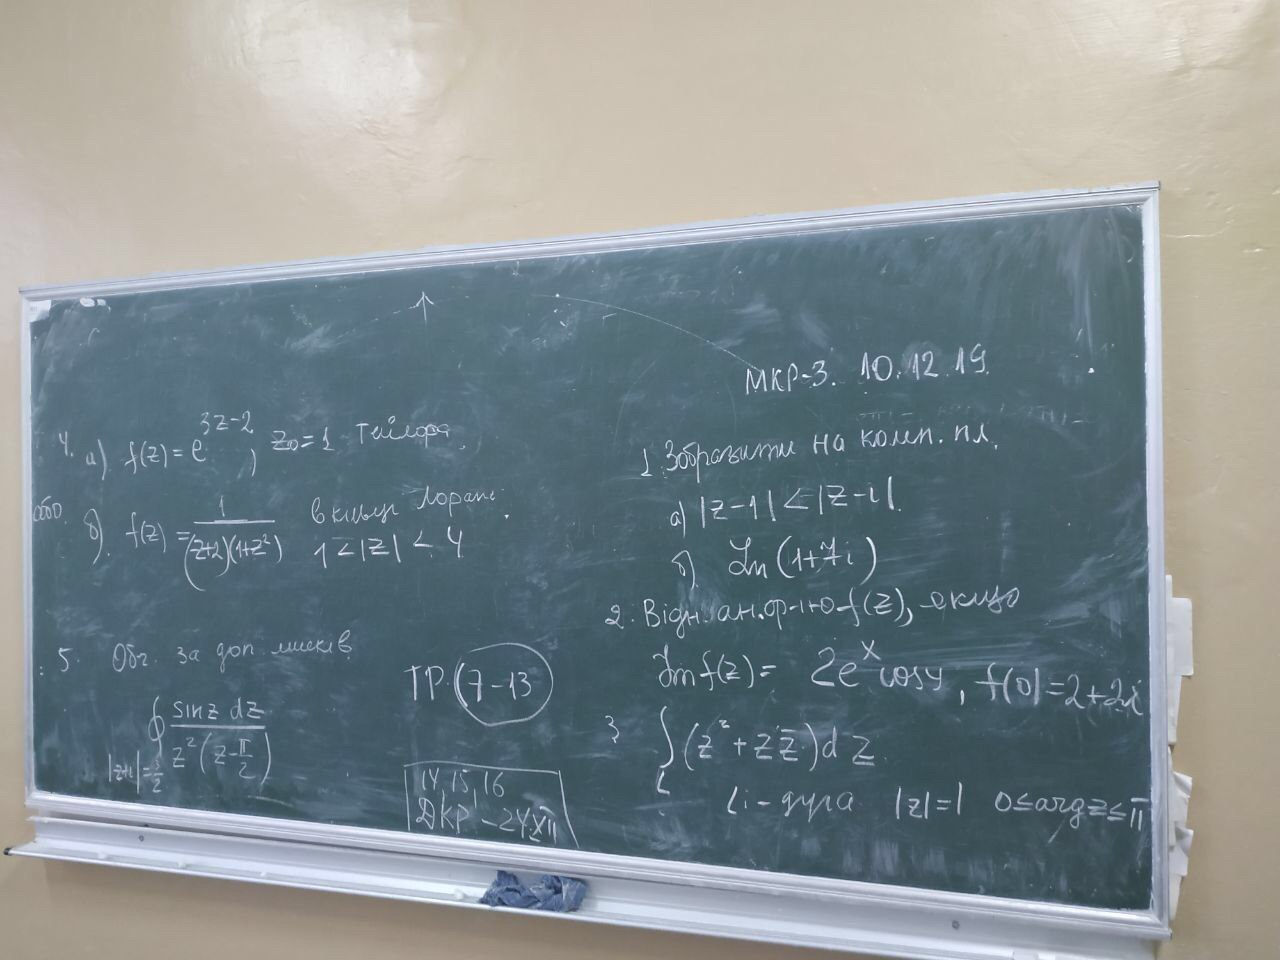 МКР-3. 10.12.19
1. Зобразити на комп. пл.
а) |z-1| < |z-i|.
б). Ln(1+7i)
2. Відн. ан. ф-цію f(z), якщо
Im f(z) = 2e^x cosy, f(0)=2+2i
3 ∫_L (z² + z z̄) dz
L: - дуга |z|=1 0≤argz≤π
4. а) f(z) = e^{3z-2}, z₀=1 Тейлора,
або. б). f(z) = 1/((z+2)(1+z²)) в кільці Лорана.
1<|z|<4
5. Обч. за доп. лишків
∮_{|z+i|=3/2} sinz dz / (z²(z-π/2))
ТР (7-13)
14, 15, 16
ДКР - 24.XII